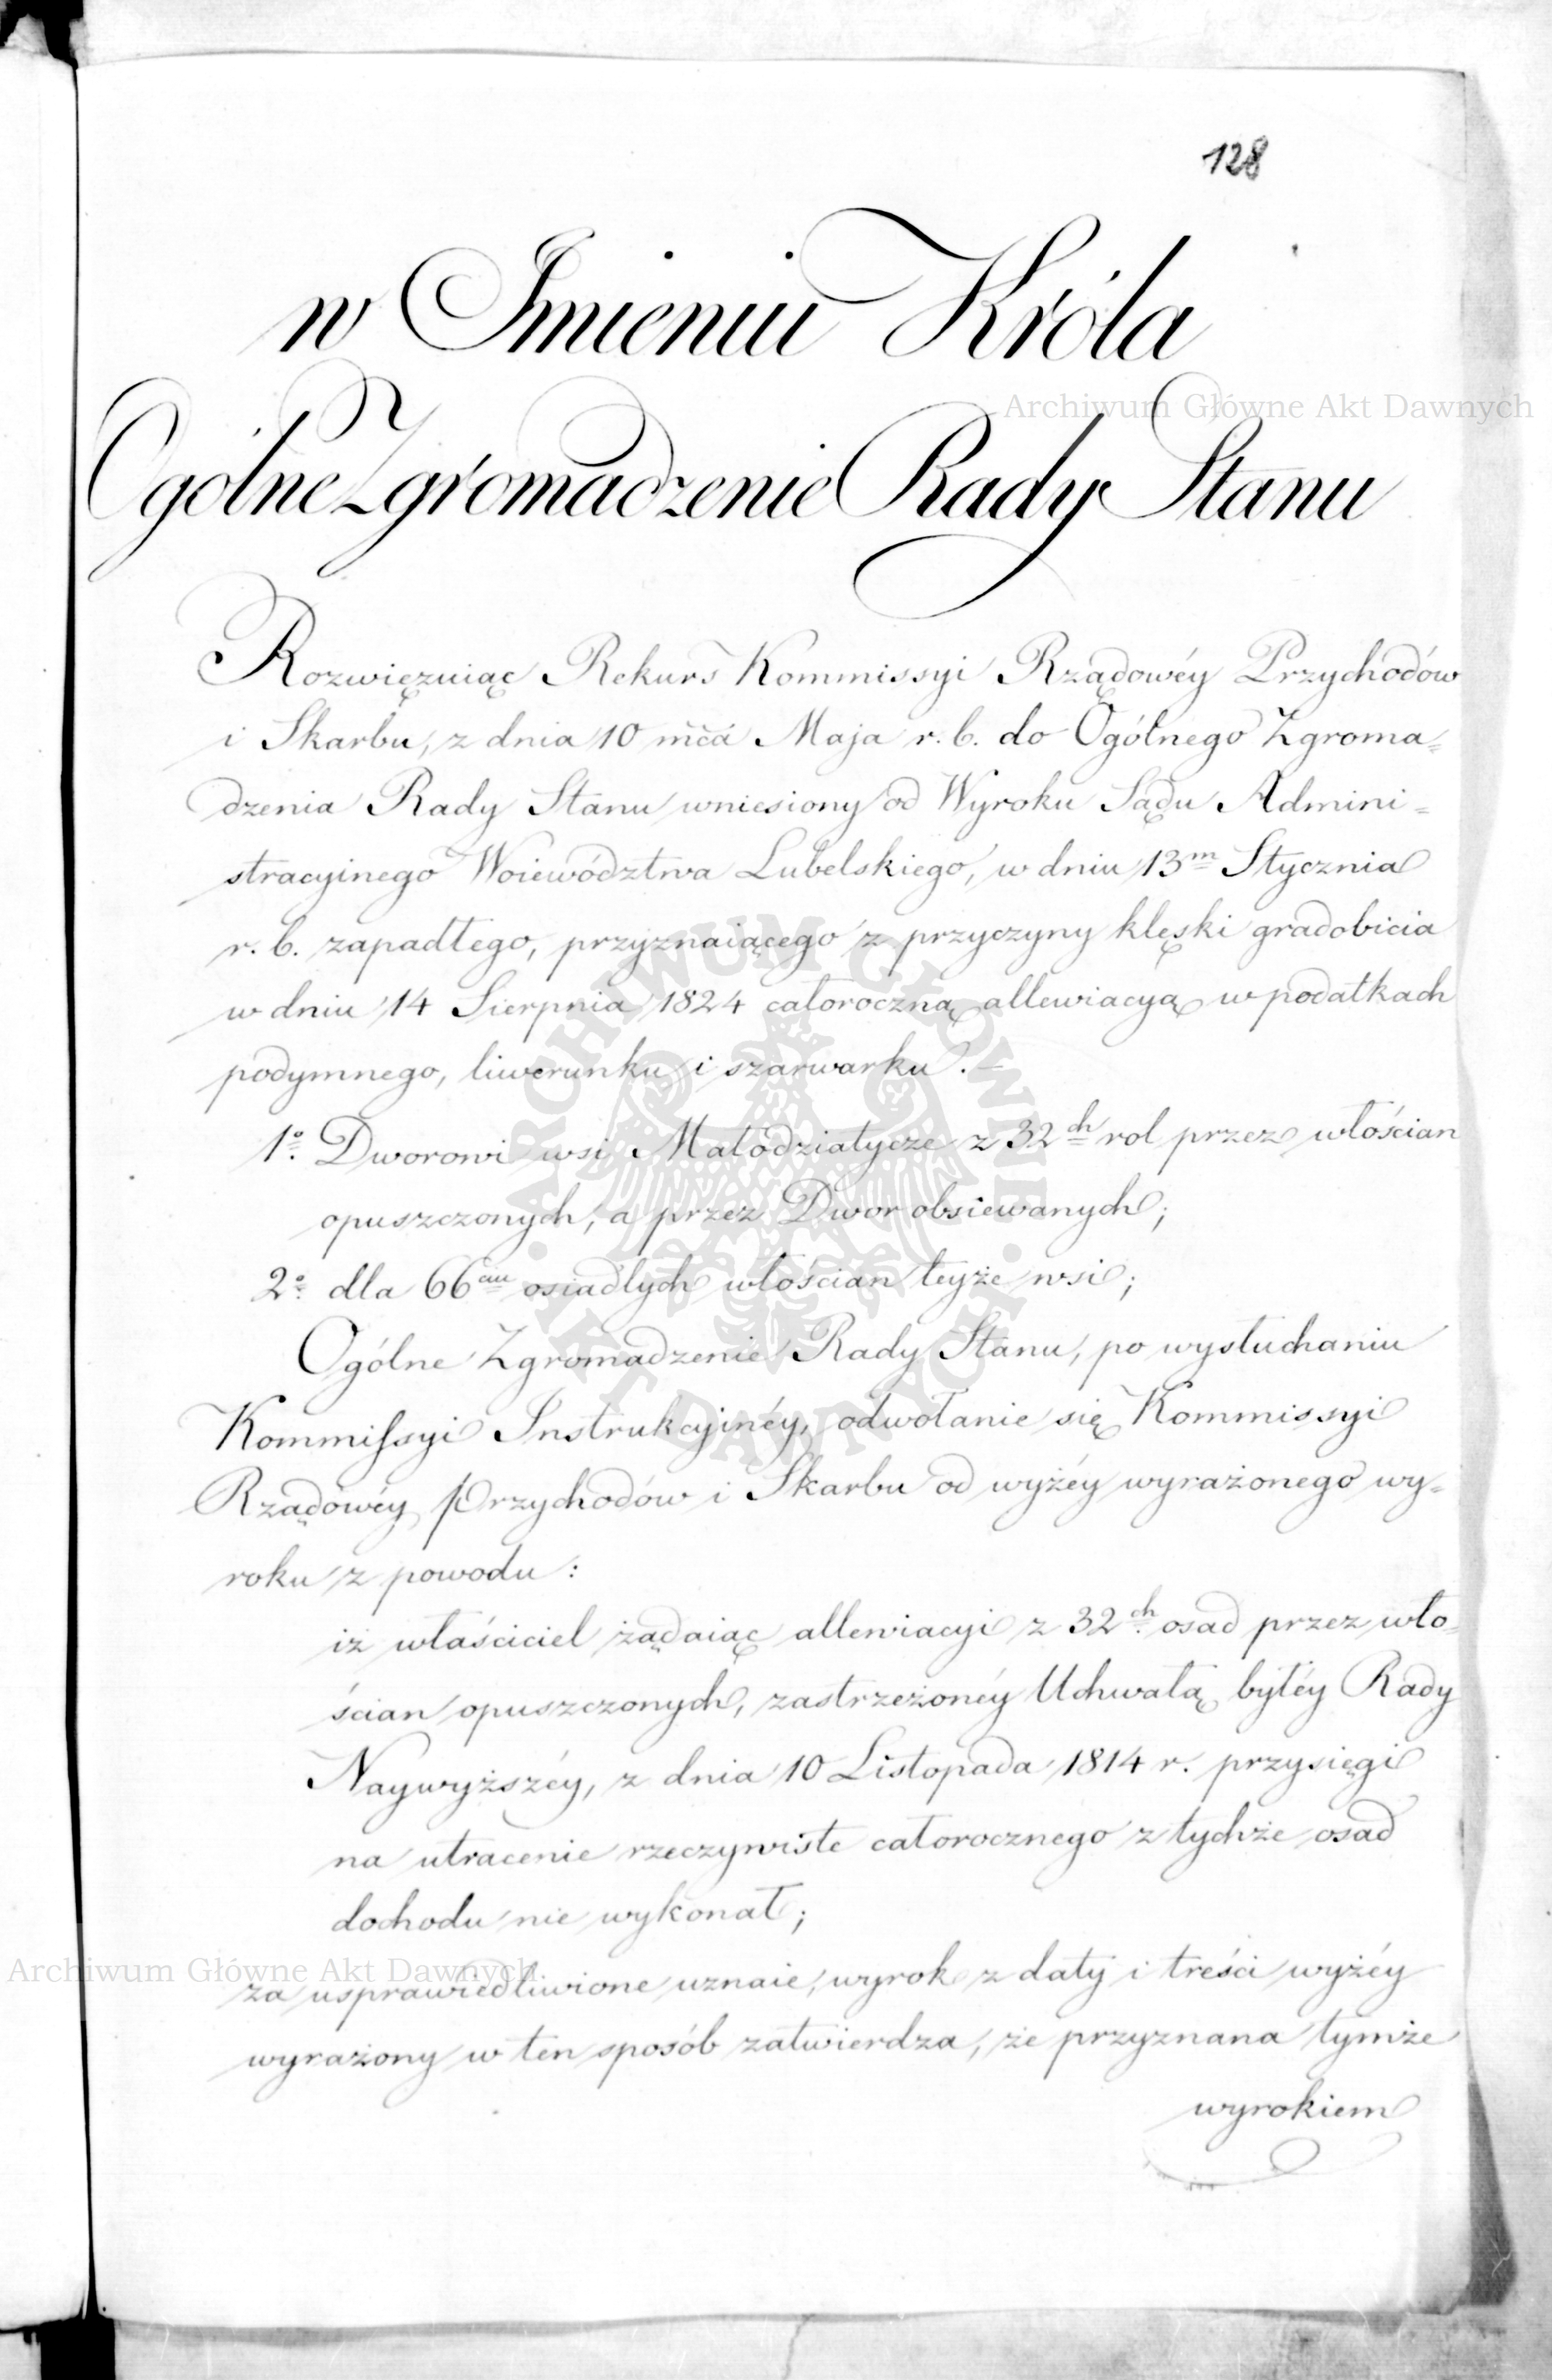 128
w Imieniu Króla
Ogólne Zgromadzenie Rady Stanu
Rozwięzuiąc Rekurs Kommissyi Rządowéy Przychodów
i Skarbu, z dnia 10 mca Maja r. b. do Ogólnego Zgroma=
dzenia Rady Stanu wniesiony od Wyroku Sądu Admini=
stracyinego Woiewództwa Lubelskiego, w dniu 13m Stycznia
r. b. zapadłego, przyznaiącego z przyczyny klęski gradobicia
w dniu 14 Sierpnia 1824 całoroczną allewiacyą w podatkach
podymnego, liwerunku i szarwarku. –
1o. Dworowi wsi Małodziatycze z 32ch rol przez włościan
opuszczonych, a przez Dwor obsiewanych;
2o. dla 66ciu osiadłych włościan teyże wsi;
Ogólne Zgromadzenie Rady Stanu, po wysłuchaniu
Kommissyi Instrukcyinéy, odwołanie się Kommissyi
Rządowéy Przychodów i Skarbu od wyżéy wyrażonego wy=
roku z powodu:
iż właściciel żądaiąc allewiacyi z 32ch osad przez wło=
ścian opuszczonych, zastrzeżonéy Uchwałą byłéy Rady
Naywyższéy, z dnia 10 Listopada 1814 r. przysięgi
na utracenie rzeczywiste całorocznego z tychże osad
dochodu nie wykonał;
za usprawiedliwione uznaie, wyrok z daty i treści wyżéy
wyrażony w ten sposób zatwierdza, że przyznana tymże
wyrokiem
Archiwum Główne Akt Dawnych
ARCHIWUM GŁÓWNE AKT DAWNYCH
Archiwum Główne Akt Dawnych